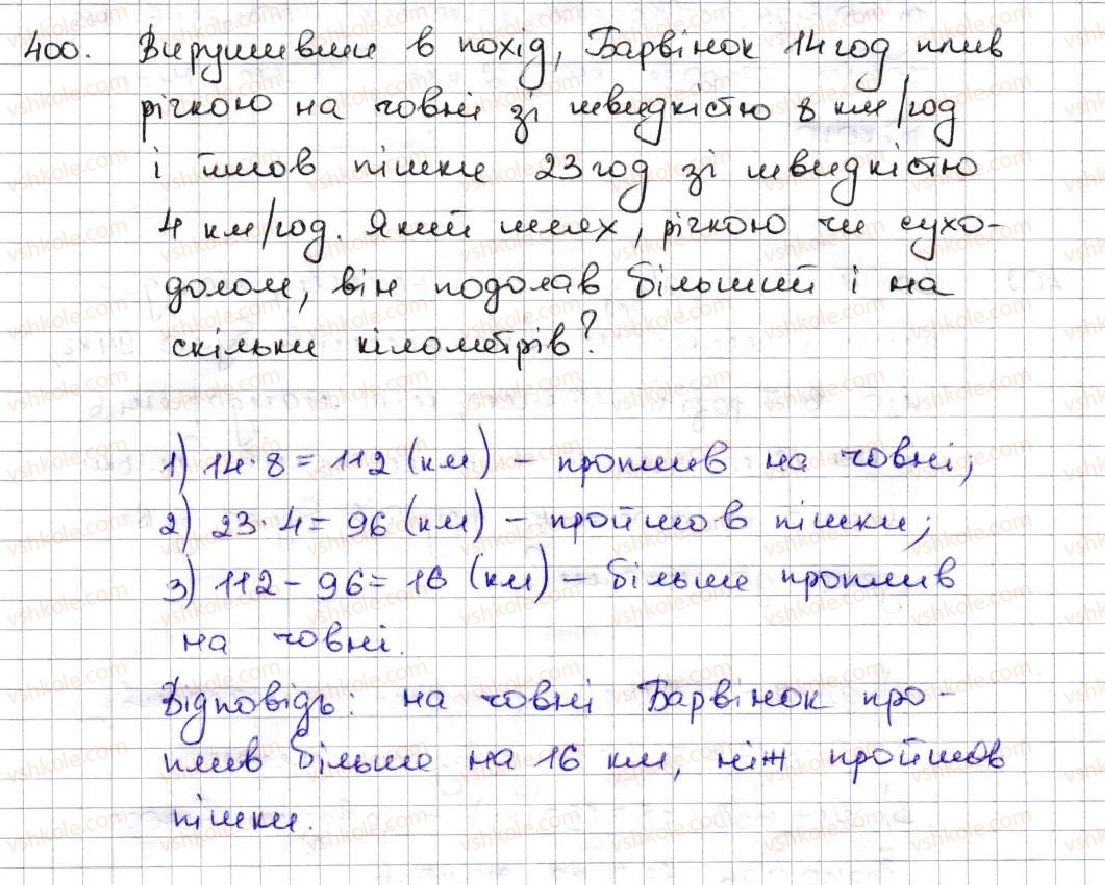 400. Вирушивши в похід, Барвінок 14 год плив
річкою на човні зі швидкістю 8 км/год
і йшов пішки 23 год зі швидкістю
4 км/год. Який шлях, річкою чи сухо-
долом, він подолав більший і на
скільки кілометрів?
1) 14·8 = 112 (км) – проплив на човні;
2) 23·4 = 96 (км) – пройшов пішки;
3) 112 – 96 = 16 (км) – більше проплив
на човні.
Відповідь: на човні Барвінок про-
плив більше на 16 км, ніж пройшов
пішки.